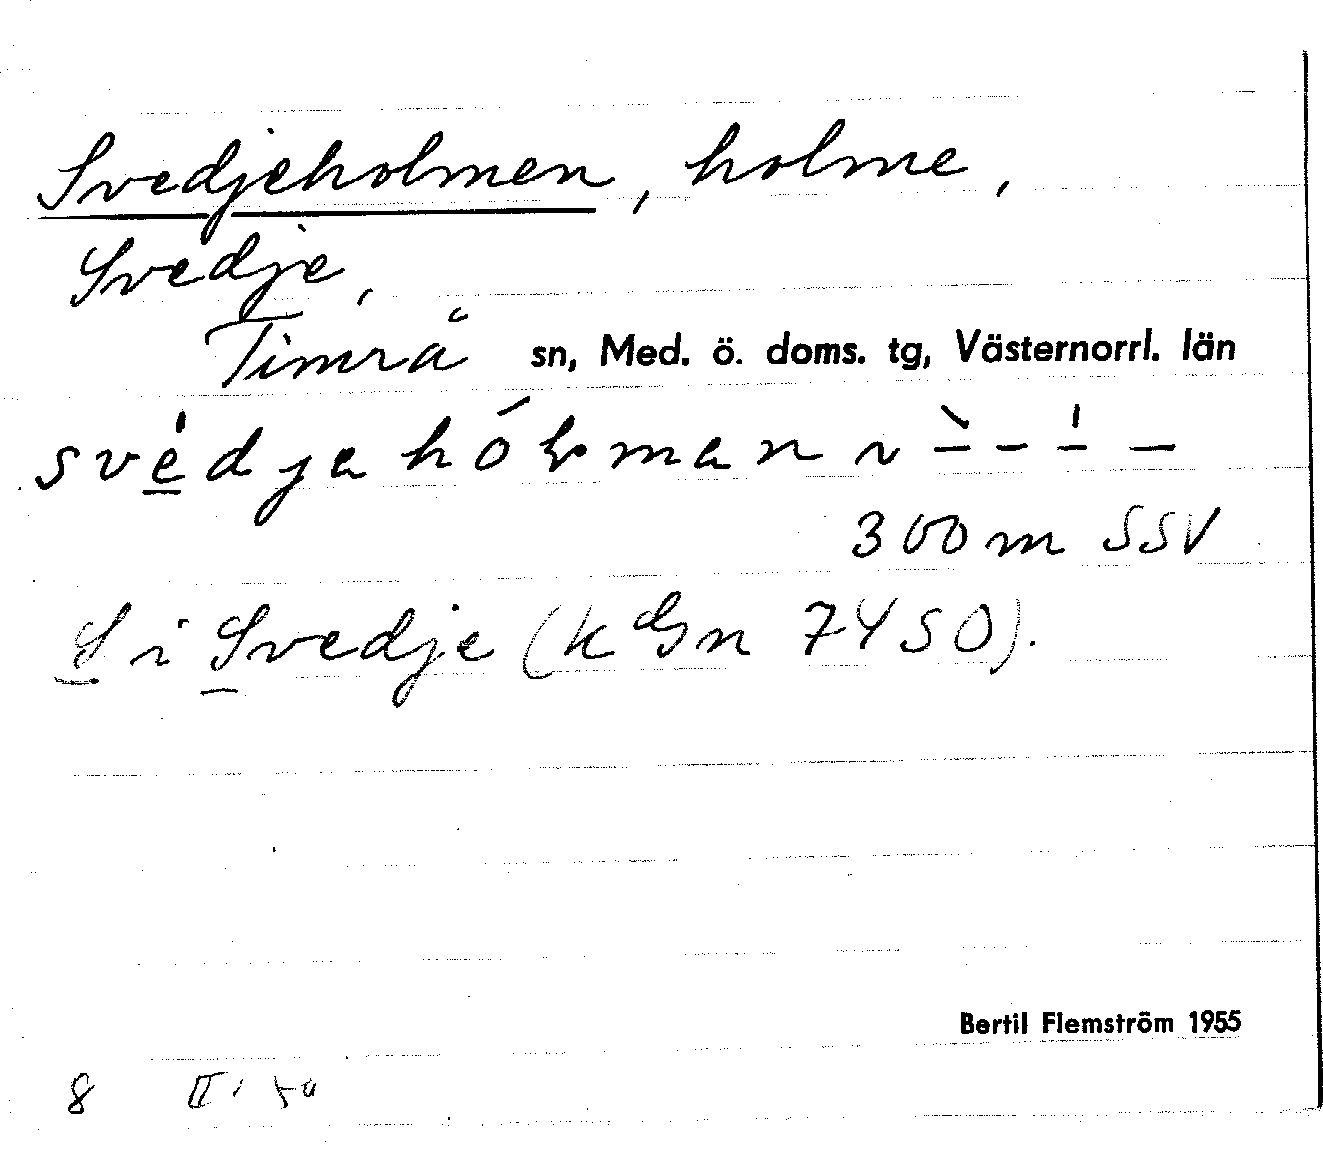 Svedjeholmen, holme,
Svedje,
Timrå sn, Med. ö. doms. tg, Västernorrl. län
300 m SSV
S i Svedje (k Gn 7450).
Bertil Flemström 1955
8 II